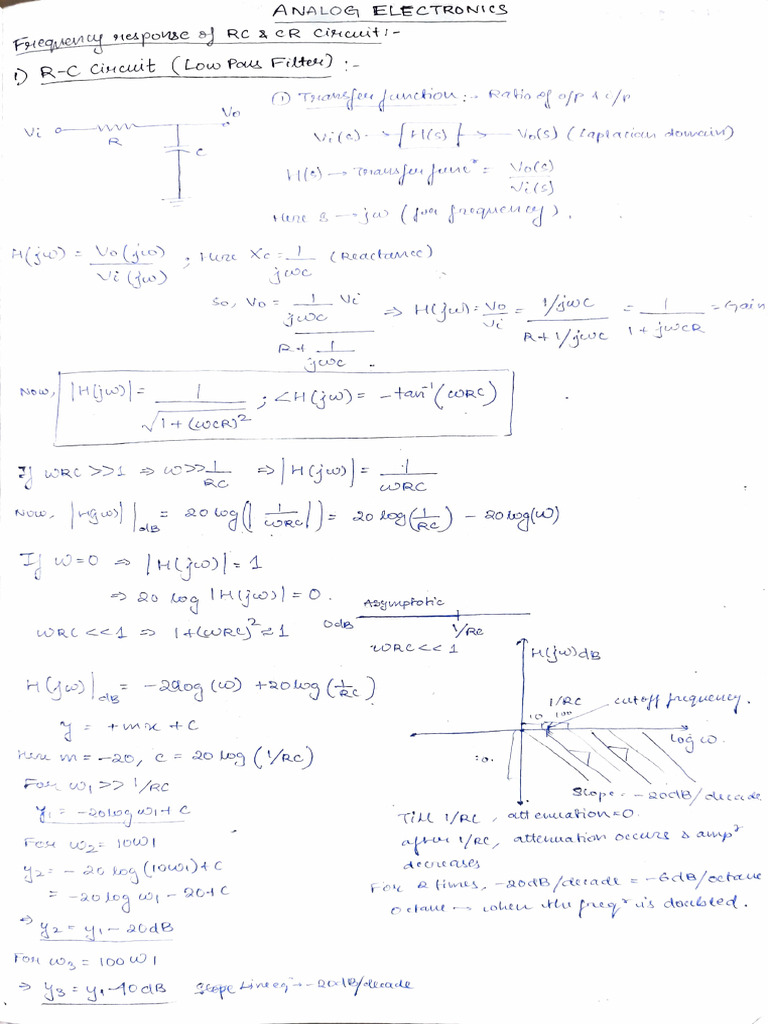 ANALOG ELECTRONICS
Frequency response of RC & CR Circuit:-
1) R-C Circuit (Low Pass Filter):-
① Transfer function:- Ratio of o/p & i/p
Vi R C Vo
Vi(s) → H(s) → Vo(s) (Laplacian domain)
H(s) → Transfer funcⁿ = Vo(s)/Vi(s)
Here s → jω (for frequency).
H(jω) = Vo(jω)/Vi(jω) ; Here Xc = 1/jωC (Reactance)
So, Vo = (1/jωC)/(R+1/jωC) Vi ⇒ H(jω) = Vo/Vi = (1/jωC)/(R+1/jωC) = 1/(1+jωCR) = Gain
Now, |H(jω)| = 1/√(1+(ωCR)²) ; ∠H(jω) = -tan⁻¹(ωRC)
If ωRC>>1 ⇒ ω>>1/RC ⇒ |H(jω)| = 1/ωRC
Now, |H(jω)||dB = 20 log(|1/ωRC|) = 20 log(1/RC) - 20log(ω)
If ω=0 ⇒ |H(jω)| = 1
⇒ 20 log |H(jω)| = 0.
ωRC<<1 ⇒ 1+(ωRC)² ≈ 1
Asymptotic
0dB 1/RC
ωRC<<1
H(jω)dB
1/RC cutoff frequency.
10 100
log ω
Slope = -20dB/decade
H(jω)|dB = -20log(ω) + 20log(1/RC)
y = +mx + C
Here m = -20, c = 20 log(1/RC)
For ω1 >> 1/RC
y1 = -20log ω1 + C
For ω2 = 10ω1
y2 = -20 log(10ω1) + C
= -20 log ω1 - 20 + C
⇒ y2 = y1 - 20dB
For ω3 = 100ω1
⇒ y3 = y1 - 40dB Slope Line eqⁿ → -20dB/decade
Till 1/RC, attenuation=0.
after 1/RC, attenuation occurs & ampᵈ
decreases
For 2 times, -20dB/decade = -6dB/octave
Octave → when the freqʸ is doubled.